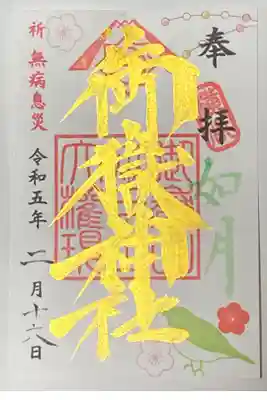 奉拝
如月
御嶽神社
祈 無病息災
令和五年 二月十六日